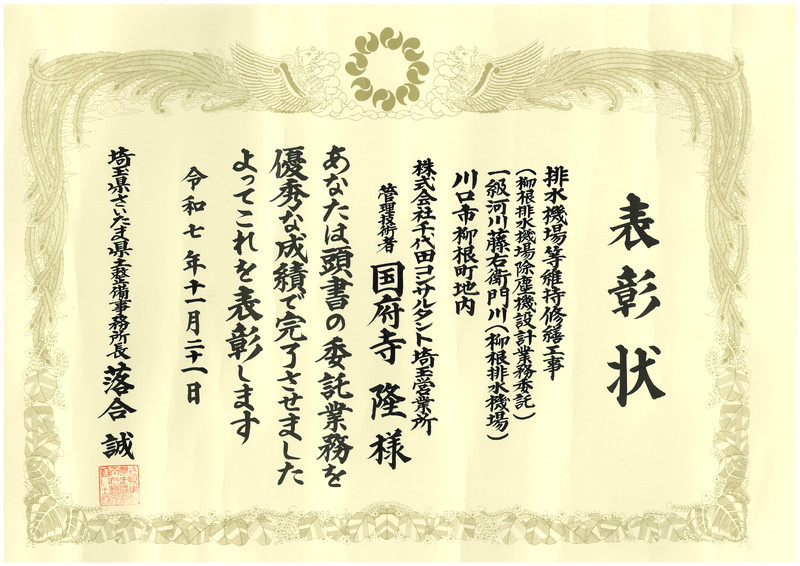 表彰状
排水機場等維持修繕工事
(柳根排水機場除塵機設計業務委託)
一級河川藤右衛門川(柳根排水機場)
川口市柳根町地内
株式会社千代田コンサルタント埼玉営業所
管理技術者 国府寺 隆 様
あなたは頭書の委託業務を
優秀な成績で完了させました
よってこれを表彰します
令和七年十一月二十一日
埼玉県さいたま県土整備事務所長 落合 誠